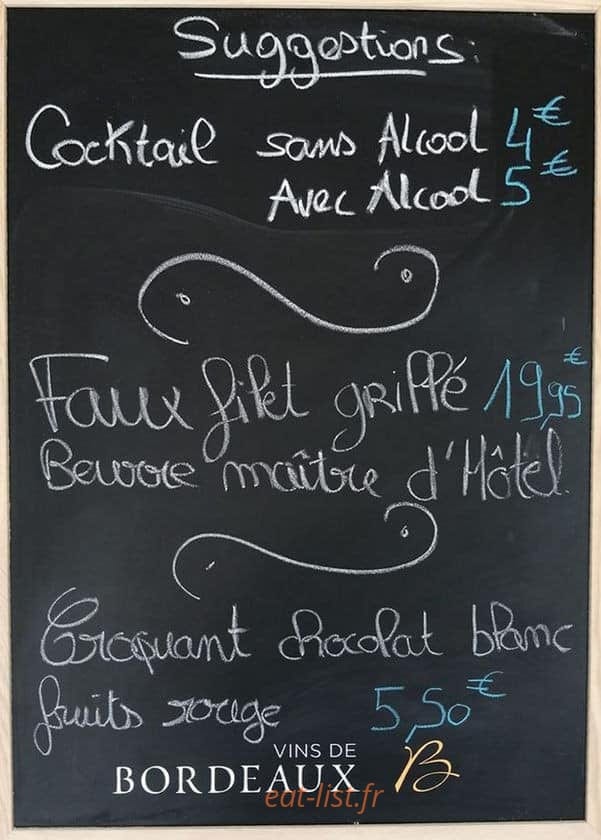 Suggestions:
Cocktail sans Alcool 4€
Avec Alcool 5€
Faux filet grillé 19,95€
Beurre maître d'Hôtel.
Croquant chocolat blanc
fruits rouge 5,50€
VINS DE
BORDEAUX B
eat-list.fr